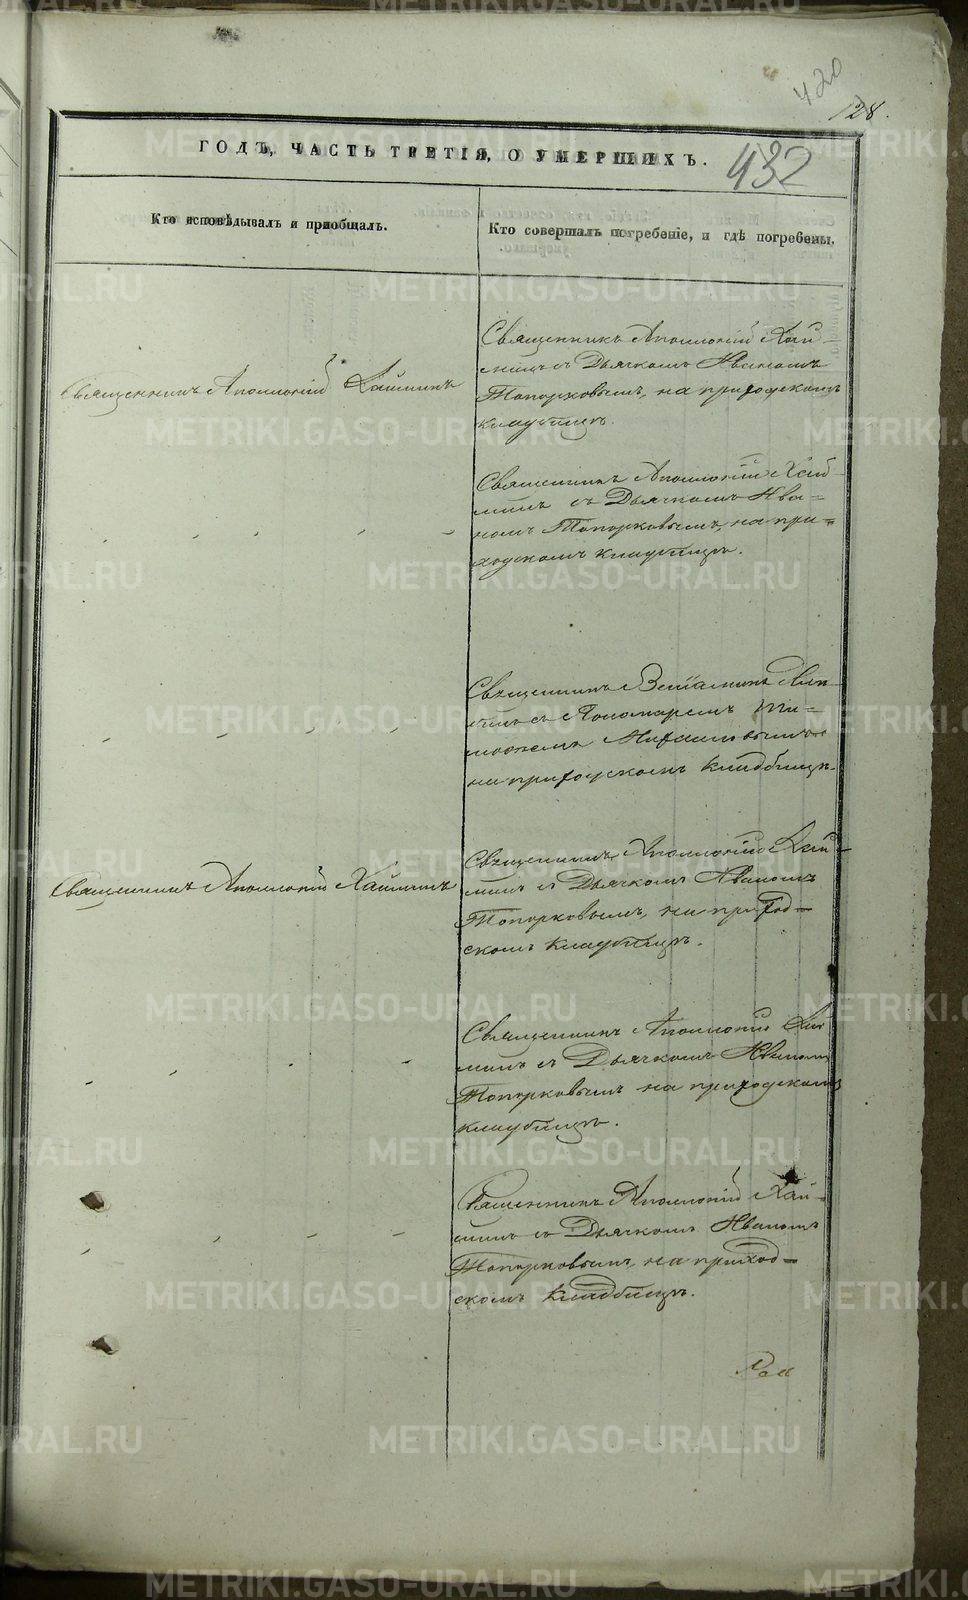 420
128.
ГОДЪ, ЧАСТЬ ТРЕТІЯ, О УМЕРШИХЪ.
432
Кто исповѣдывалъ и пріобщалъ.
Кто совершалъ погребеніе, и гдѣ погребены.
Священникъ Аполлоній Хай-
минъ съ Дьячкомъ Иваномъ
Священникъ Аполлоній Хайминъ
Топорковымъ, на приходскомъ
кладбищѣ.
Священникъ Аполлоній Хай-
минъ съ Дьячкомъ Ива=
номъ Топорковымъ, на при=
ходскомъ кладбищѣ.
Священникъ Веніаминъ
съ Пономаремъ Ти=
мофеемъ
на приходскомъ кладбищѣ.
Священникъ Аполлоній Хай-
Священникъ Аполлоній Хайминъ
минъ съ Дьячкомъ Иваномъ
Топорковымъ, на приход=
скомъ кладбищѣ.
Священникъ Аполлоній Хай
минъ съ Дьячкомъ Иваномъ
Топорковымъ на приходскомъ
кладбищѣ.
Священникъ Аполлоній Хай-
минъ съ Дьячкомъ Иваномъ
Топорковымъ, на приход=
скомъ кладбищѣ.
METRIKI.GASO-URAL.RU